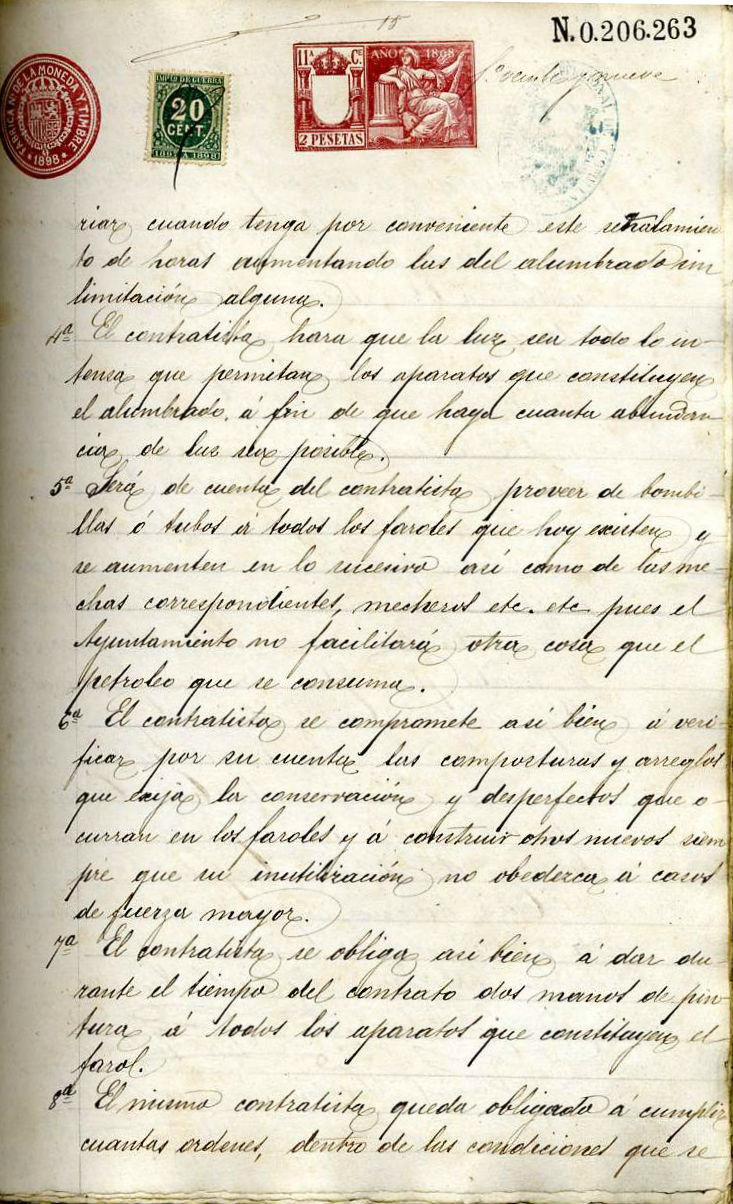 15
N.0.206.263
FABRICA Nl. DE LA MONEDA Y TIMBRE
*1898*
IMPTO DE GUERRA
20
CENT.
1897 A 1898
11ª Cᴱ
AÑO 1898
2 PESETAS
riar cuando tenga por conveniente este señalamien
to de horas aumentando las del alumbrado sin
limitación alguna.
4ª El contratista hara que la luz sea todo lo in-
tensa que permitan los aparatos que constituyen
el alumbrado á fin de que haya cuanta abundan
cia de luz sea posible.
5ª Será de cuenta del contratista proveer de bombi-
llas ó tubos a todos los faroles que hoy existen y
se aumenten en lo sucesivo así como de las me-
chas correspondientes, mecheros etc. etc pues el
Ayuntamiento no facilitará otra cosa que el
petroleo que se consuma.
6ª El contratista se compromete asi bien á veri-
ficar por su cuenta las composturas y arreglos
que exija la conservación y desperfectos que o-
curran en los faroles y á construir otros nuevos siem
pre que su inutilización no obedezca á casos
de fuerza mayor.
7ª El contratista se obliga asi bien á dar du-
rante el tiempo del contrato dos manos de pin-
tura á todos los aparatos que constituyen el
farol.
8ª El mismo contratista queda obligado á cumplir
cuantas ordenes, dentro de las condiciones que se